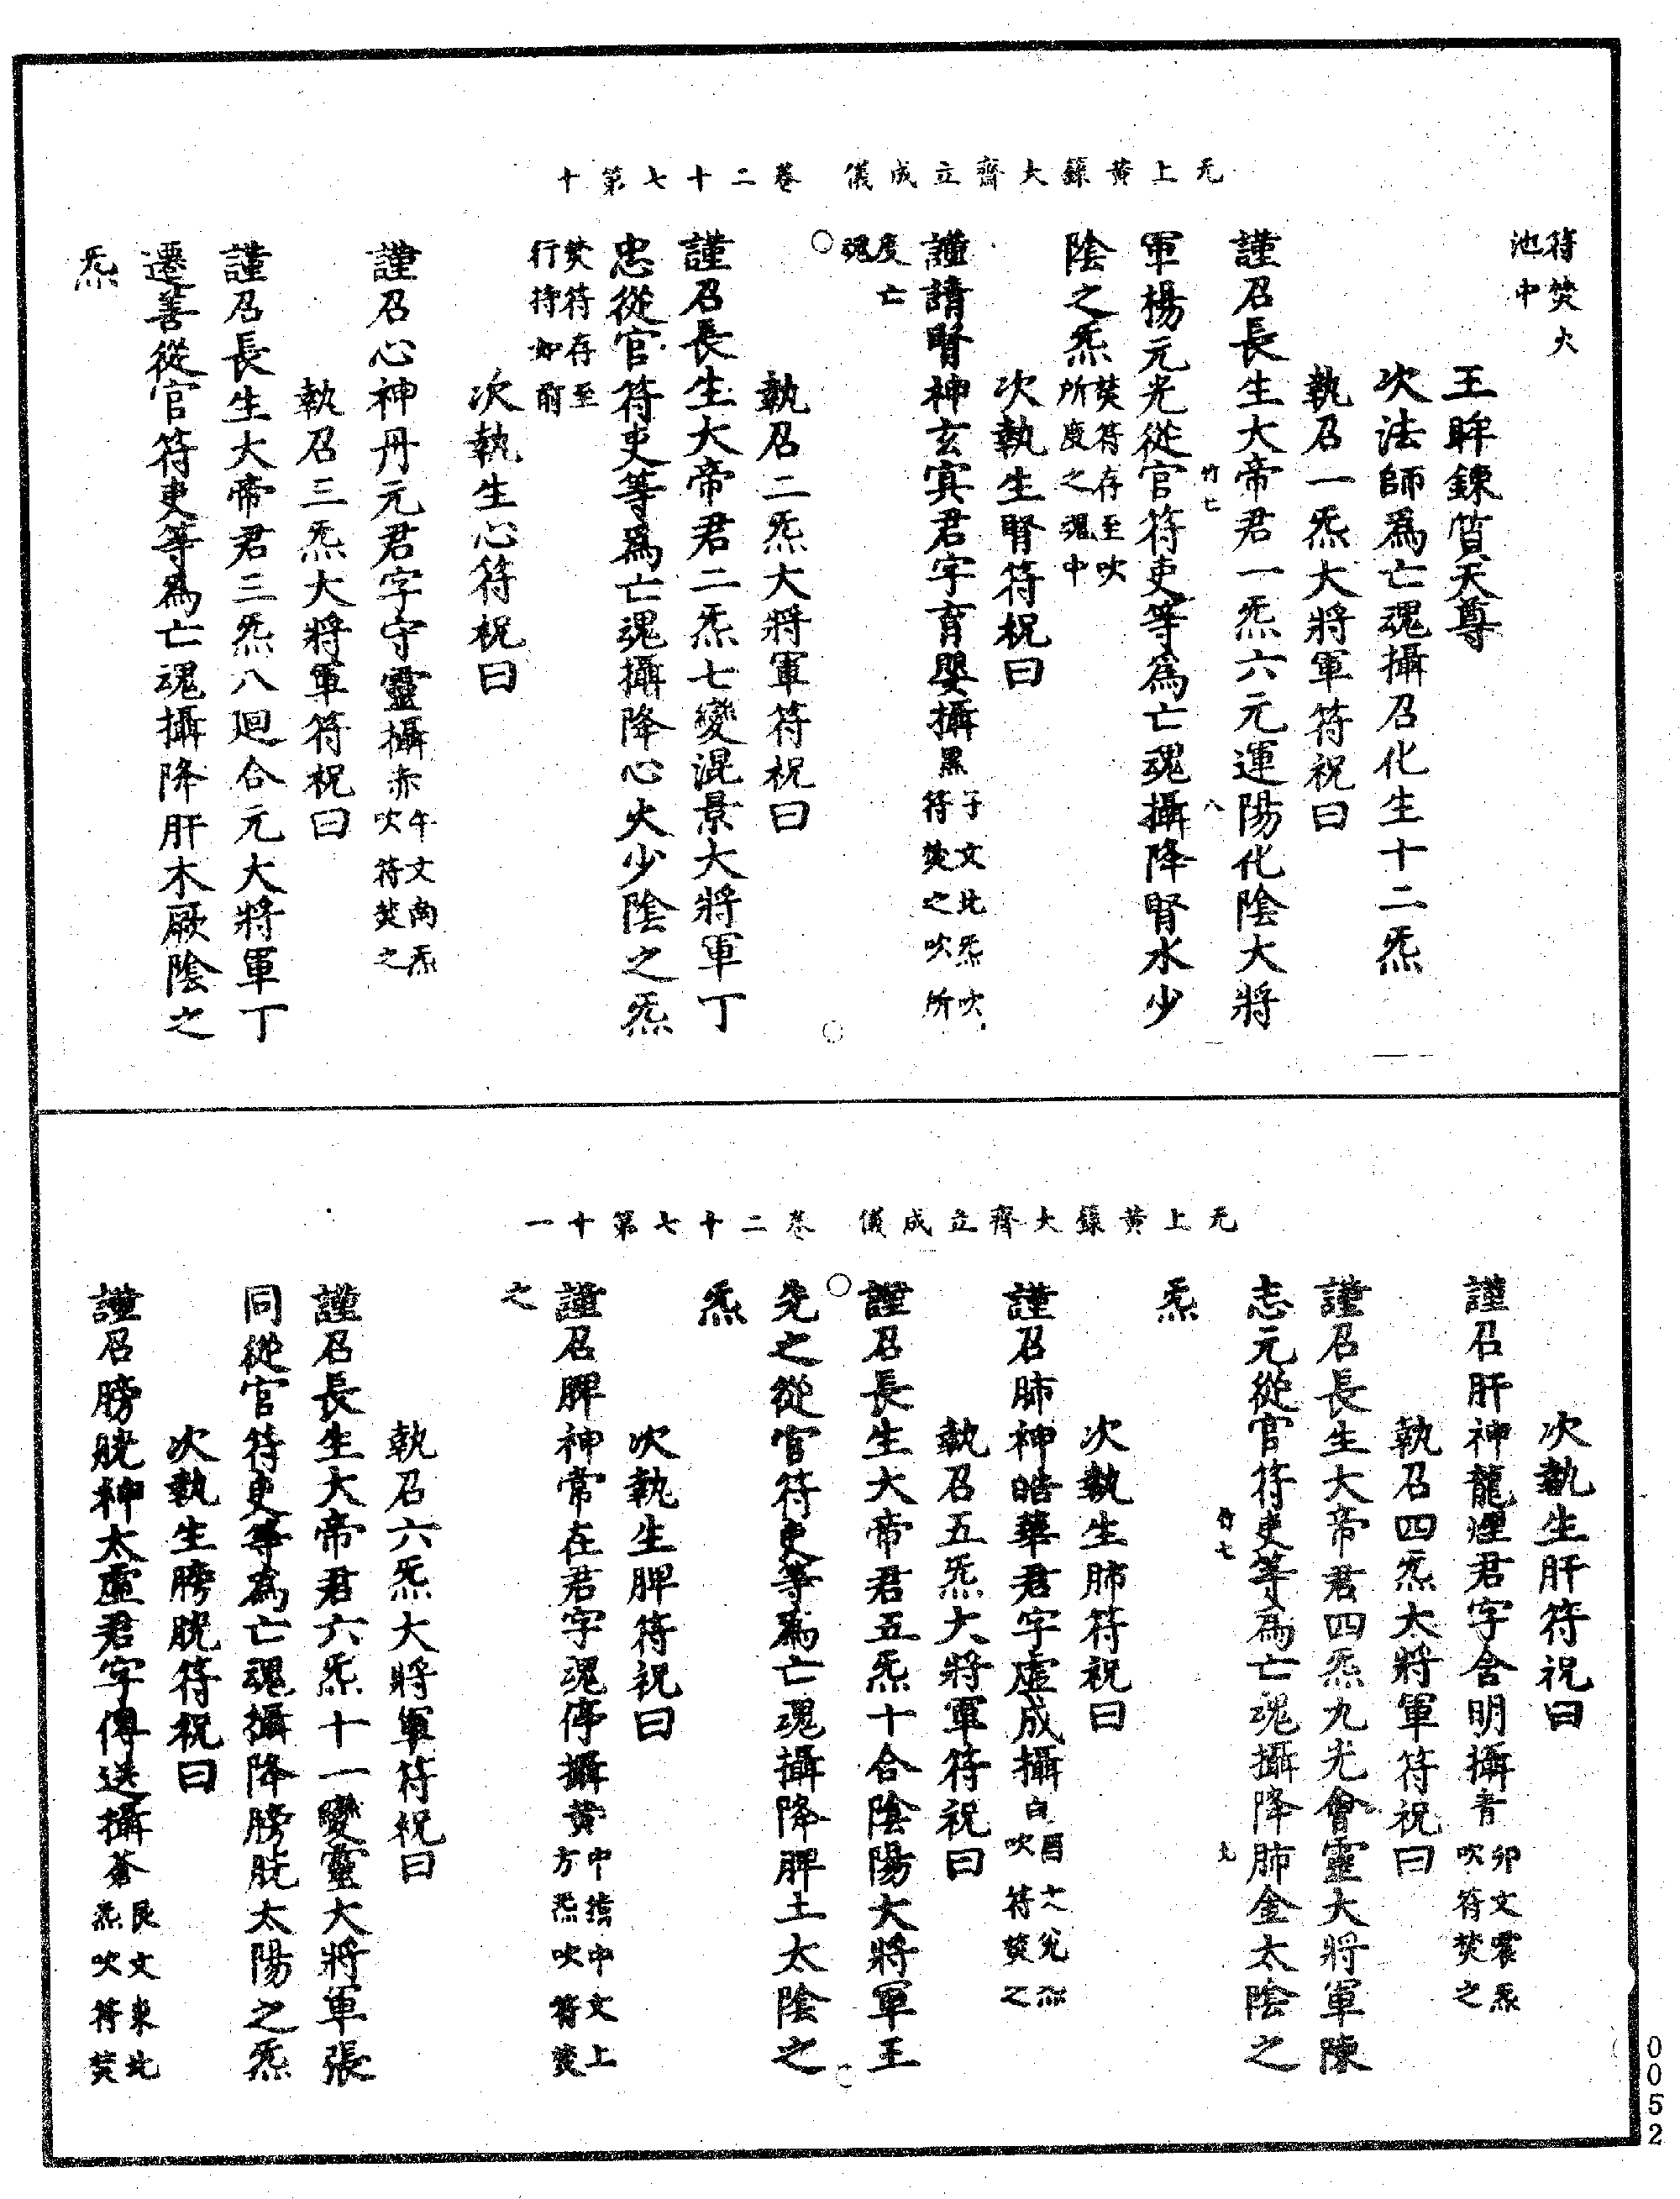 无上黃籙大齋立成儀　卷二十七第十
符焚火
池中
王眸鍊質天尊
次法師爲亡魂攝召化生十二炁
執召一炁大將軍符祝曰
謹召長生大帝君一炁六元運陽化陰大將
竹七　八
軍楊元光從官符吏等爲亡魂攝降腎水少
陰之炁焚符存至吹所度之魂中
次執生腎符祝曰
謹請腎神玄冥君字育嬰攝黑子文北炁吹符焚之吹所
度亡魂
執召二炁大將軍符祝曰
謹召長生大帝君二炁七變混景大將軍丁
忠從官符吏等爲亡魂攝降心火少陰之炁
焚符存至行持如前
次執生心符祝曰
謹召心神丹元君字守靈攝赤午文南炁吹符焚之
執召三炁大將軍符祝曰
謹召長生大帝君三炁八廻合元大將軍丁
遷善從官符吏等爲亡魂攝降肝木厥陰之
炁
无上黃籙大齋立成儀　卷二十七第十一
次執生肝符祝曰
謹召肝神龍煙君字含明攝青卯文震炁吹符焚之
執召四炁大將軍符祝曰
謹召長生大帝君四炁九光會靈大將軍陳
志元從官符吏等爲亡魂攝降肺金太陰之
竹七　九
炁
次執生肺符祝曰
謹召肺神皓華君字虛成攝白酉文兊炁吹符焚之
執召五炁大將軍符祝曰
謹召長生大帝君五炁十合陰陽大將軍王
先之從官符吏等爲亡魂攝降脾土太陰之
炁
次執生脾符祝曰
謹召脾神常在君字魂停攝黄中指中文上方炁吹符焚
之
執召六炁大將軍符祝曰
謹召長生大帝君六炁十一變靈大將軍張
同從官符吏等爲亡魂攝降膀胱太陽之炁
次執生膀胱符祝曰
謹召膀胱神太虛君字傳送攝蒼艮文東北炁吹符焚
0052